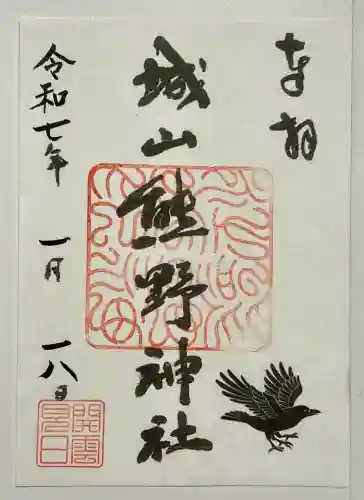 奉拝
城山熊野神社
令和七年 一月 一八日
開雲
見日